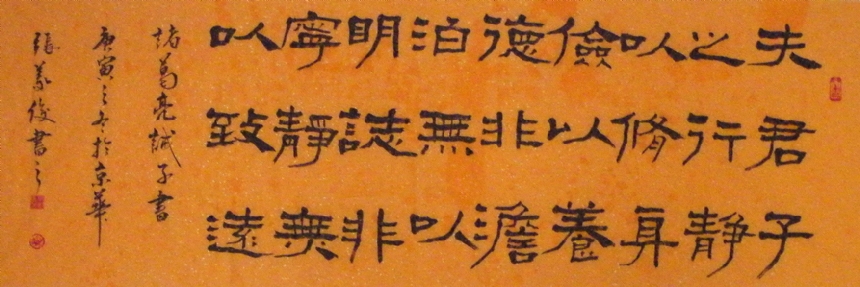 夫君子
之行静
以脩身
儉以養
德非澹
泊無以
明誌非
寧靜無
以致遠
諸葛亮誡子書
庚寅之冬於京華
張義俊書之